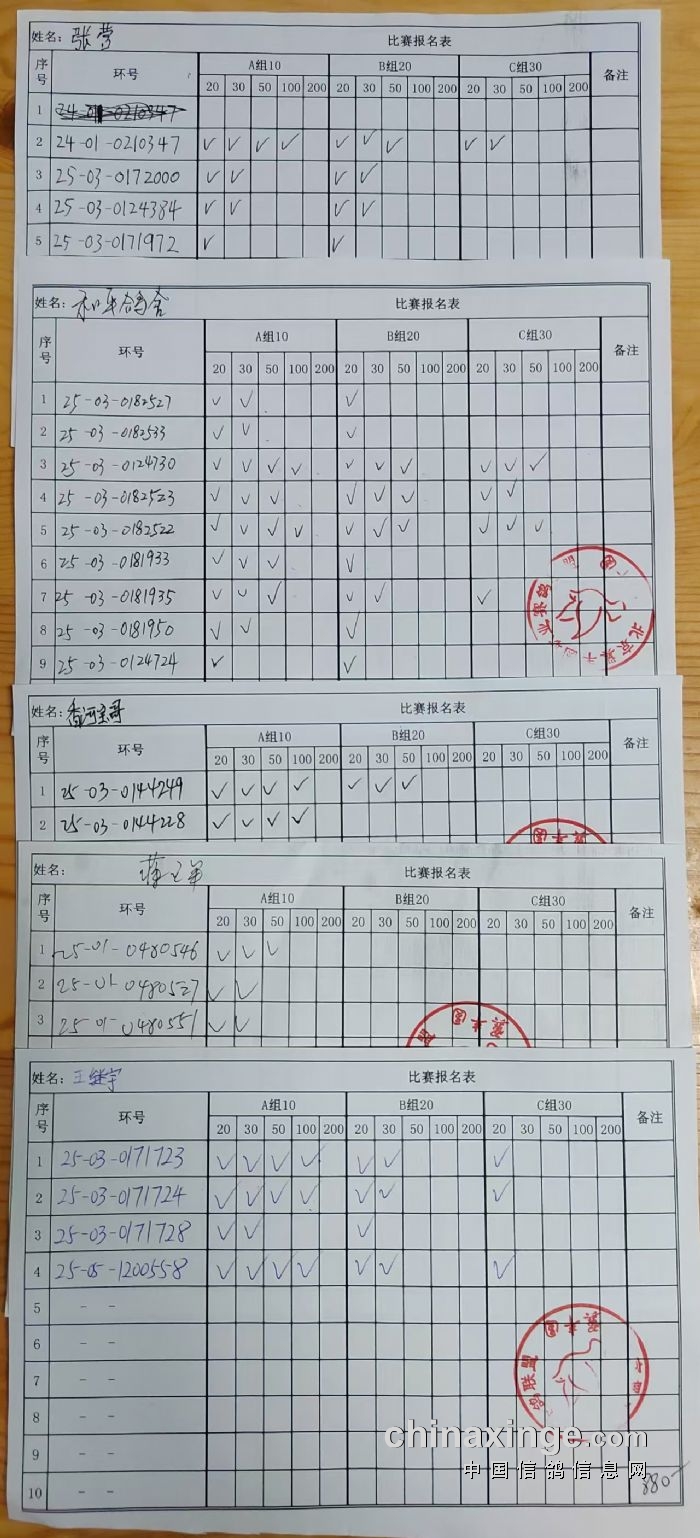 姓名：张营 比赛报名表
序号 环号 A组10 B组20 C组30 备注
20 30 50 100 200 20 30 50 100 200 20 30 50 100 200
1 24-01-0210347
2 24-01-0210347 ✓ ✓ ✓ ✓ ✓ ✓ ✓ ✓ ✓
3 25-03-0172000 ✓ ✓ ✓ ✓
4 25-03-0124384 ✓ ✓ ✓ ✓
5 25-03-0171972 ✓ ✓
姓名：和平鸽舍 比赛报名表
序号 环号 A组10 B组20 C组30 备注
20 30 50 100 200 20 30 50 100 200 20 30 50 100 200
1 25-03-0182527 ✓ ✓ ✓
2 25-03-0182533 ✓ ✓ ✓
3 25-03-0124730 ✓ ✓ ✓ ✓ ✓ ✓ ✓ ✓ ✓ ✓
4 25-03-0182523 ✓ ✓ ✓ ✓ ✓ ✓ ✓ ✓
5 25-03-0182522 ✓ ✓ ✓ ✓ ✓ ✓ ✓ ✓ ✓ ✓
6 25-03-0181933 ✓ ✓ ✓ ✓
7 25-03-0181935 ✓ ✓ ✓ ✓ ✓ ✓
8 25-03-0181950 ✓ ✓ ✓
9 25-03-0124724 ✓ ✓
姓名：香河宝哥 比赛报名表
序号 环号 A组10 B组20 C组30 备注
20 30 50 100 200 20 30 50 100 200 20 30 50 100 200
1 25-03-0144249 ✓ ✓ ✓ ✓ ✓ ✓ ✓
2 25-03-0144228 ✓ ✓ ✓ ✓
姓名： 比赛报名表
序号 环号 A组10 B组20 C组30 备注
20 30 50 100 200 20 30 50 100 200 20 30 50 100 200
1 25-01-0480546 ✓ ✓ ✓
2 25-01-0480527 ✓ ✓
3 25-01-0480551 ✓ ✓
姓名：王继宇 比赛报名表
序号 环号 A组10 B组20 C组30 备注
20 30 50 100 200 20 30 50 100 200 20 30 50 100 200
1 25-03-0171723 ✓ ✓ ✓ ✓ ✓ ✓ ✓
2 25-03-0171724 ✓ ✓ ✓ ✓ ✓ ✓ ✓
3 25-03-0171728 ✓ ✓ ✓
4 25-05-1200558 ✓ ✓ ✓ ✓ ✓ ✓ ✓
5 - -
6 - -
7 - -
8 - -
9 - -
10 - - 880-
鸽联盟
chinaxinge.com
中国信鸽信息网